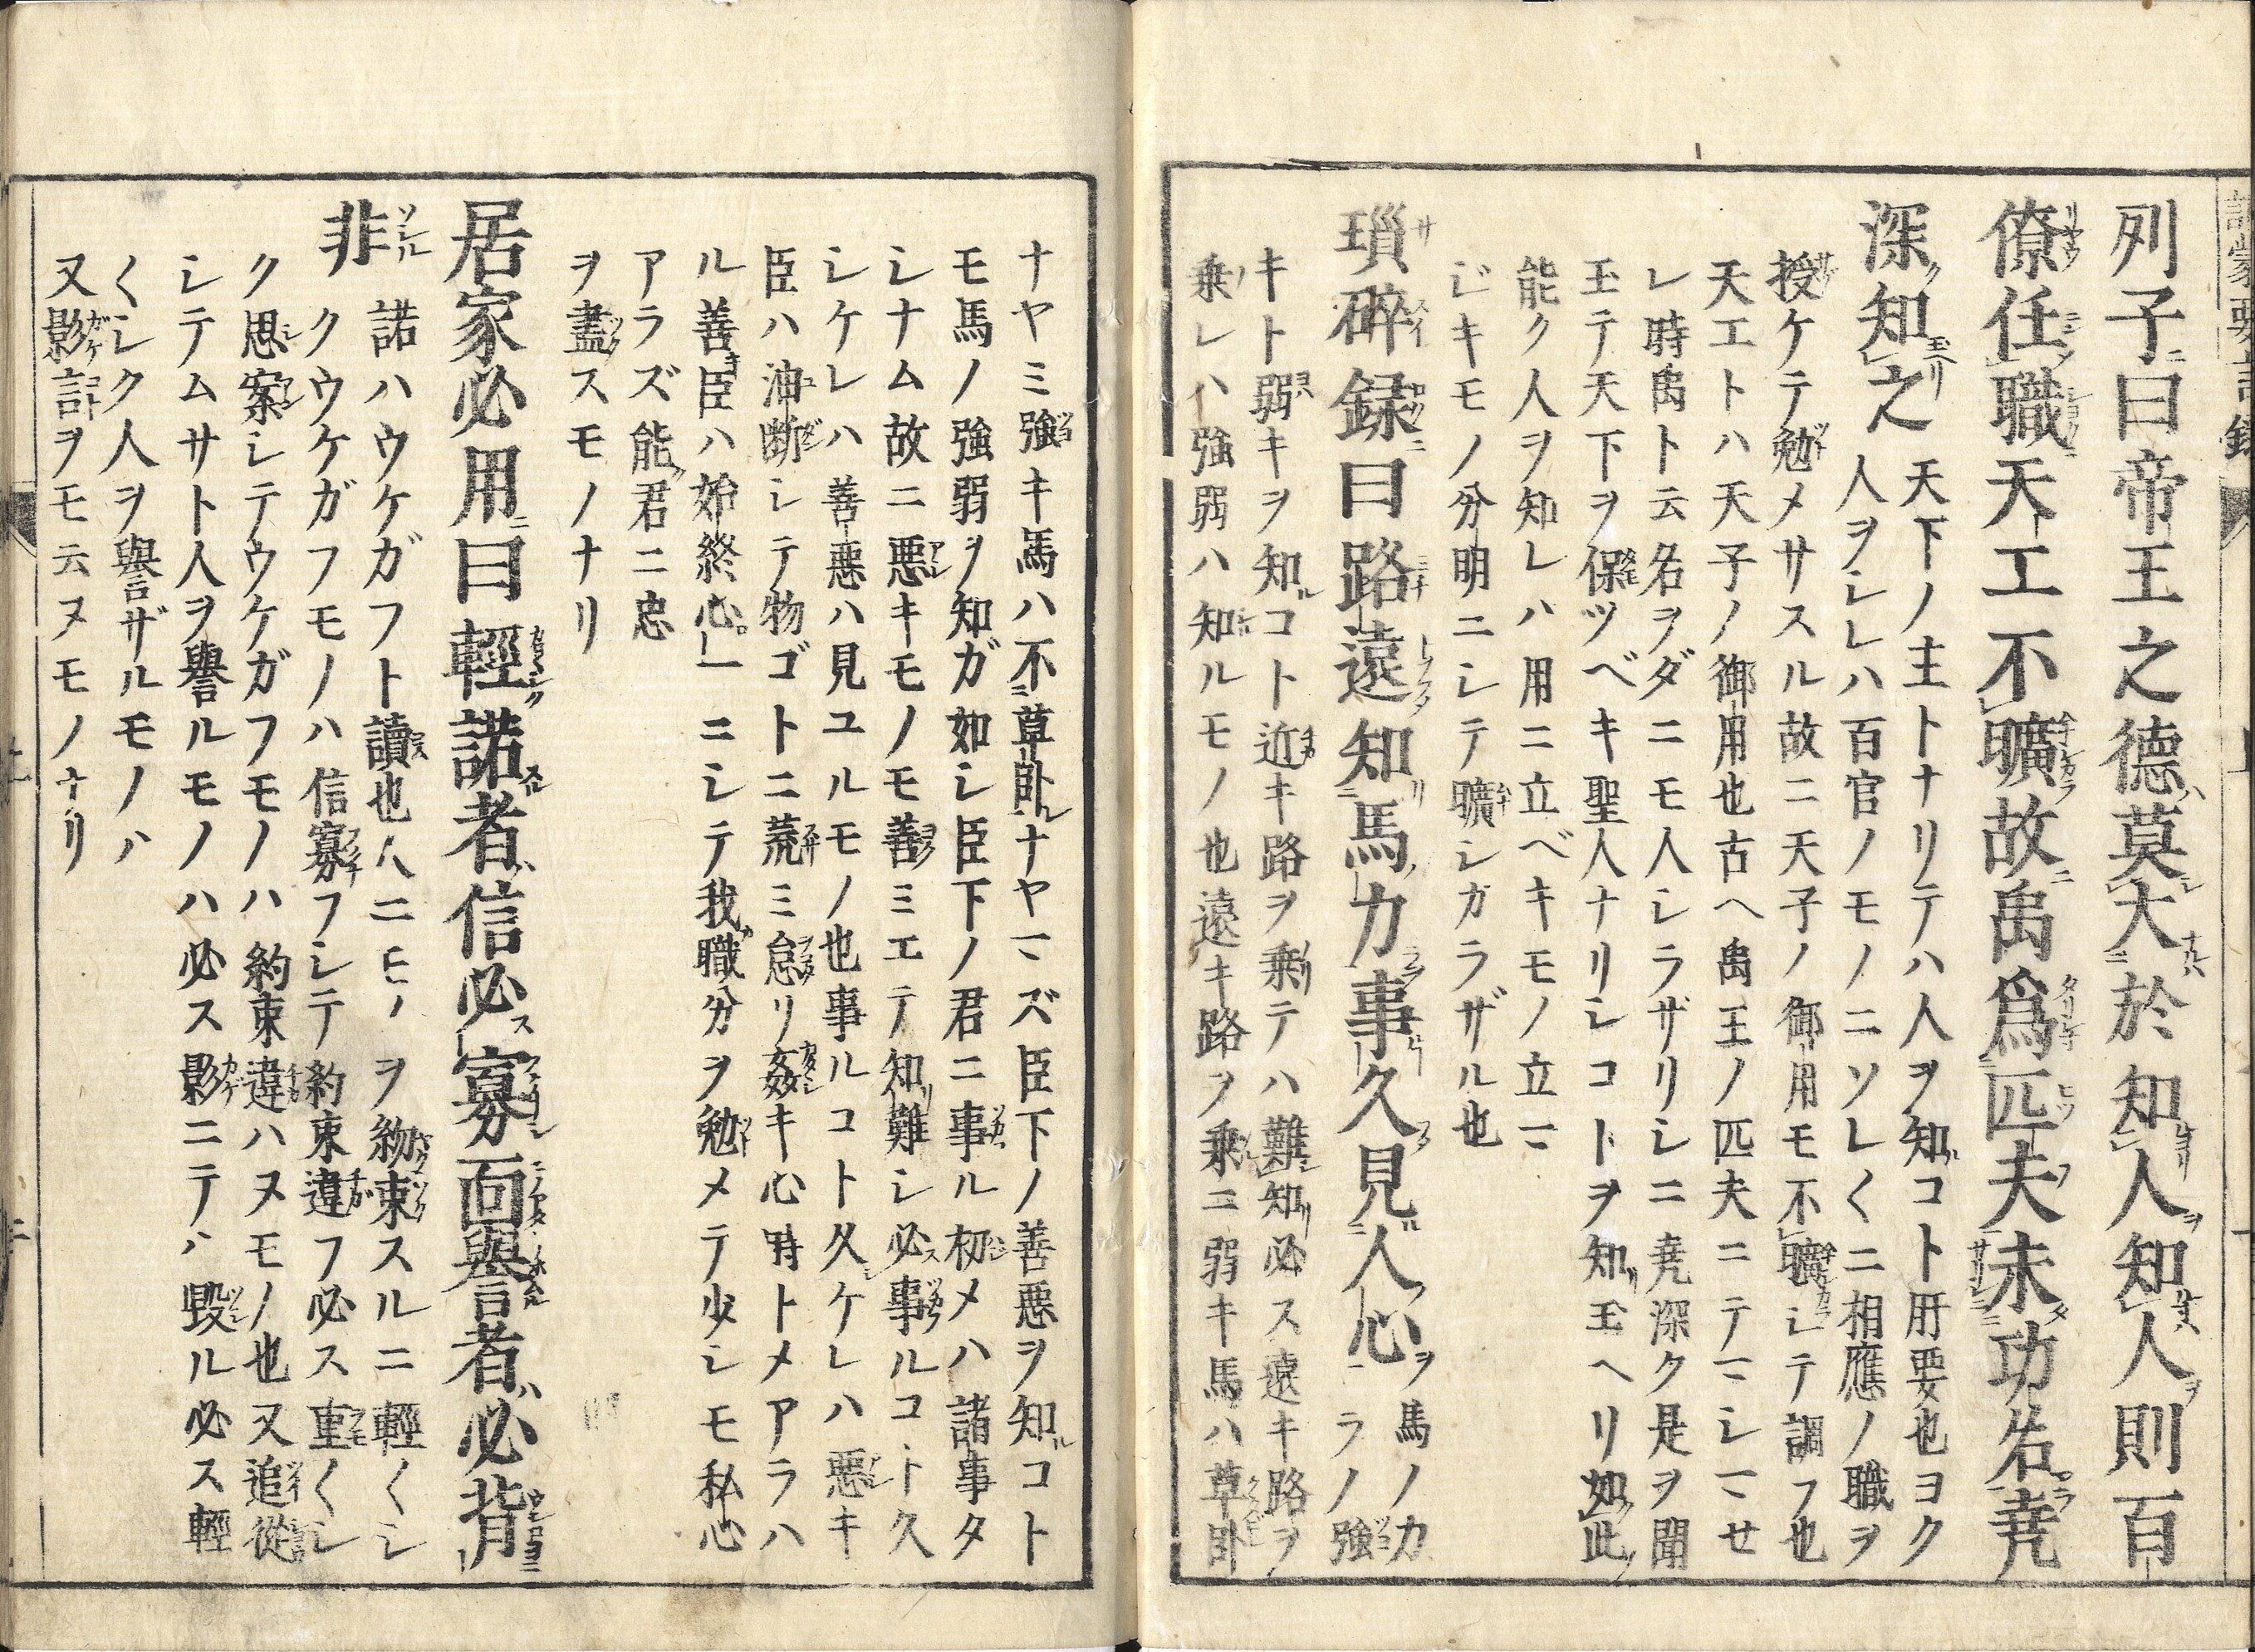 列子曰帝王之德莫大於知人知人則百
僚任職天工不曠故禹爲匹夫未功名尭
深知之
天下ノ主トナリテハ人ヲ知コト肝要也ヨク
人ヲシレハ百官ノモノニソレ〱ニ相應ノ職ヲ
授ケテ勉メサスル故ニ天子ノ御用モ不曠シテ調フ也
天工トハ天子ノ御用也古ヘ禹王ノ匹夫ニテマシマセ
シ時禹ト云名ヲダニモ人シラザリシニ尭深ク是ヲ聞
玉テ天下ヲ保ツベキ聖人ナリシコトヲ知玉ヘリ如此
能ク人ヲ知レハ用ニ立ベキモノ立マ
ジキモノ分明ニシテ曠シカラザル也
瑣碎録曰路遠知馬力事久見人心
馬ノ力
ラノ強
キト弱キヲ知コト近キ路ヲ乗テハ難知必ス遠キ路ヲ
乗レハ強弱ハ知ルモノ也遠キ路ヲ乗ニ弱キ馬ハ草卧
ナヤミ強キ馬ハ不草卧ナヤマズ臣下ノ善悪ヲ知コト
モ馬ノ強弱ヲ知ガ如シ臣下ノ君ニ事ル初メハ諸事タ
シナム故ニ悪キモノモ善ミエテ知難シ必事ルコト久
シケレハ善悪ハ見ユルモノ也事ルコト久ケレハ悪キ
臣ハ油断シテ物ゴトニ荒ミ怠リ姦キ心時トメアラハ
ル善臣ハ始終心一ニシテ我職分ヲ勉メテ少シモ私心
アラズ能君ニ忠
ヲ盡スモノナリ
居家必用曰輕諾者信必寡面譽者必背
非
諾ハウケガフト讀也人ニモノヲ約束スルニ輕〱シ
クウケガフモノハ信寡フシテ約束違フ必ス重〱シ
ク思案シテウケガフモノハ約束違ハヌモノ也又追從
シテムサト人ヲ譽ルモノハ必ス影ニテハ毀ル必ス輕
〱シク人ヲ譽ザルモノハ
又影言ヲモ云ヌモノナリ